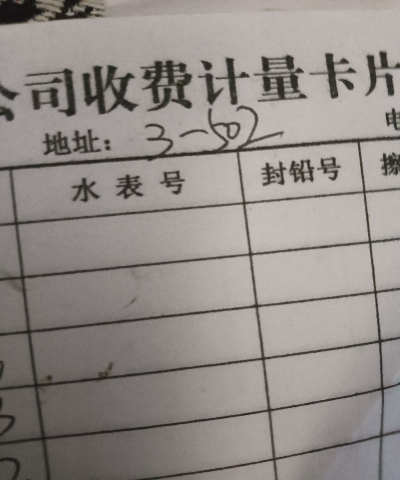 公司收费计量卡片
地址：3-502
水表号 封铅号